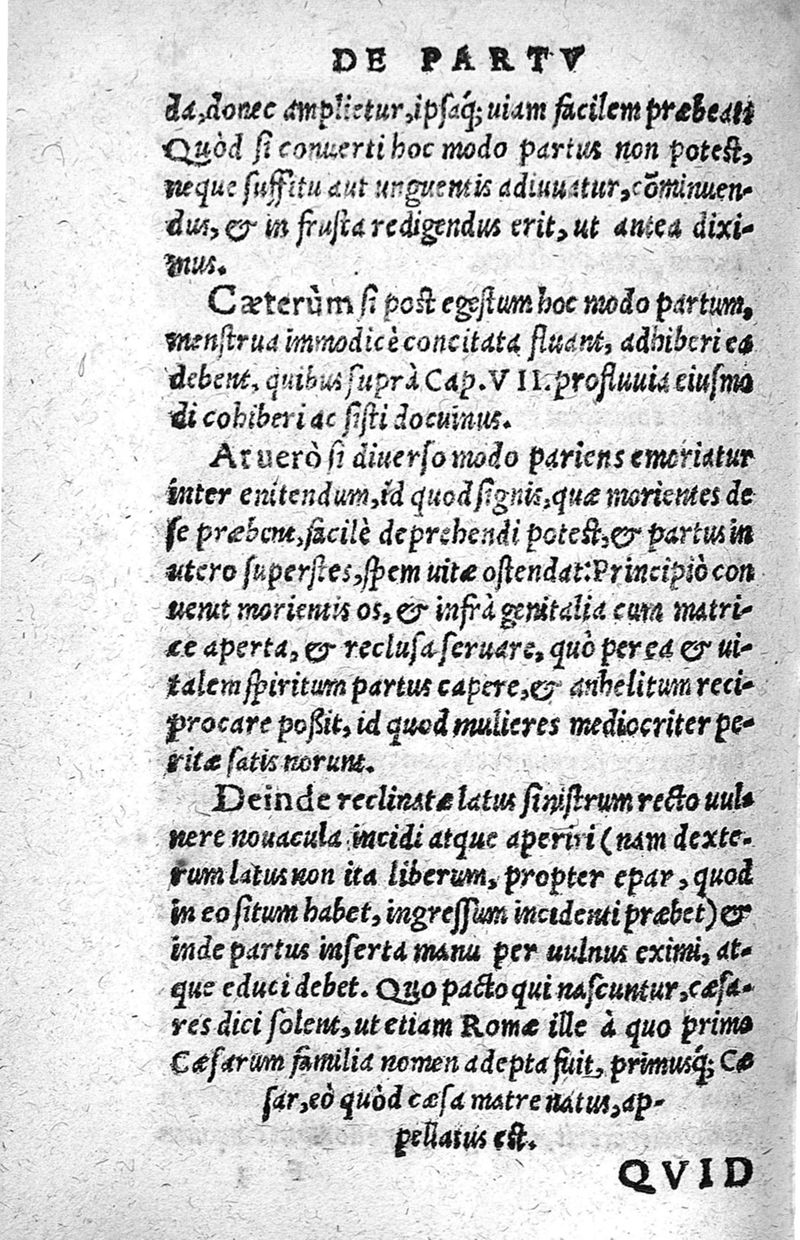 DE PARTV
da, donec amplietur, ipsaq́; uiam facilem præbeat.
Quòd si conuerti hoc modo partus non potest,
neque suffitu aut unguentis adiuuatur, cōminuen-
dus, & in frusta redigendus erit, ut antea dixi-
mus.
Cæterùm si post egestum hoc modo partum,
menstrua immodicè concitata fluant, adhiberi ea
debent, quibus suprà Cap. VII. profluuia eiusmo
di cohiberi ac sisti docuimus.
At uerò si diuerso modo pariens emoriatur
inter enitendum, id quod signis, quæ morientes de
se præbent, facilè deprehendi potest, & partus in
utero superstes, spem uitæ ostendat: Principiò con
uenit morientis os, & infrà genitalia cum matri-
ce aperta, & reclusa seruare, quò per ea & ui-
talem spiritum partus capere, & anhelitum reci-
procare possit, id quod mulieres mediocriter pe-
ritæ satis norunt.
Deinde reclinatæ latus sinistrum recto uul-
nere nouacula incidi atque aperiri (nam dexte-
rum latus non ita liberum, propter epar, quod
in eo situm habet, ingressum incidenti præbet) &
inde partus inserta manu per uulnus eximi, at-
que educi debet. Quo pacto qui nascuntur, cæsa-
res dici solent, ut etiam Romæ ille à quo primo
Cæsarum familia nomen adepta fuit, primusq́; Cæ
sar, eò quòd cæsa matre natus, ap-
pellatus est.
QVID